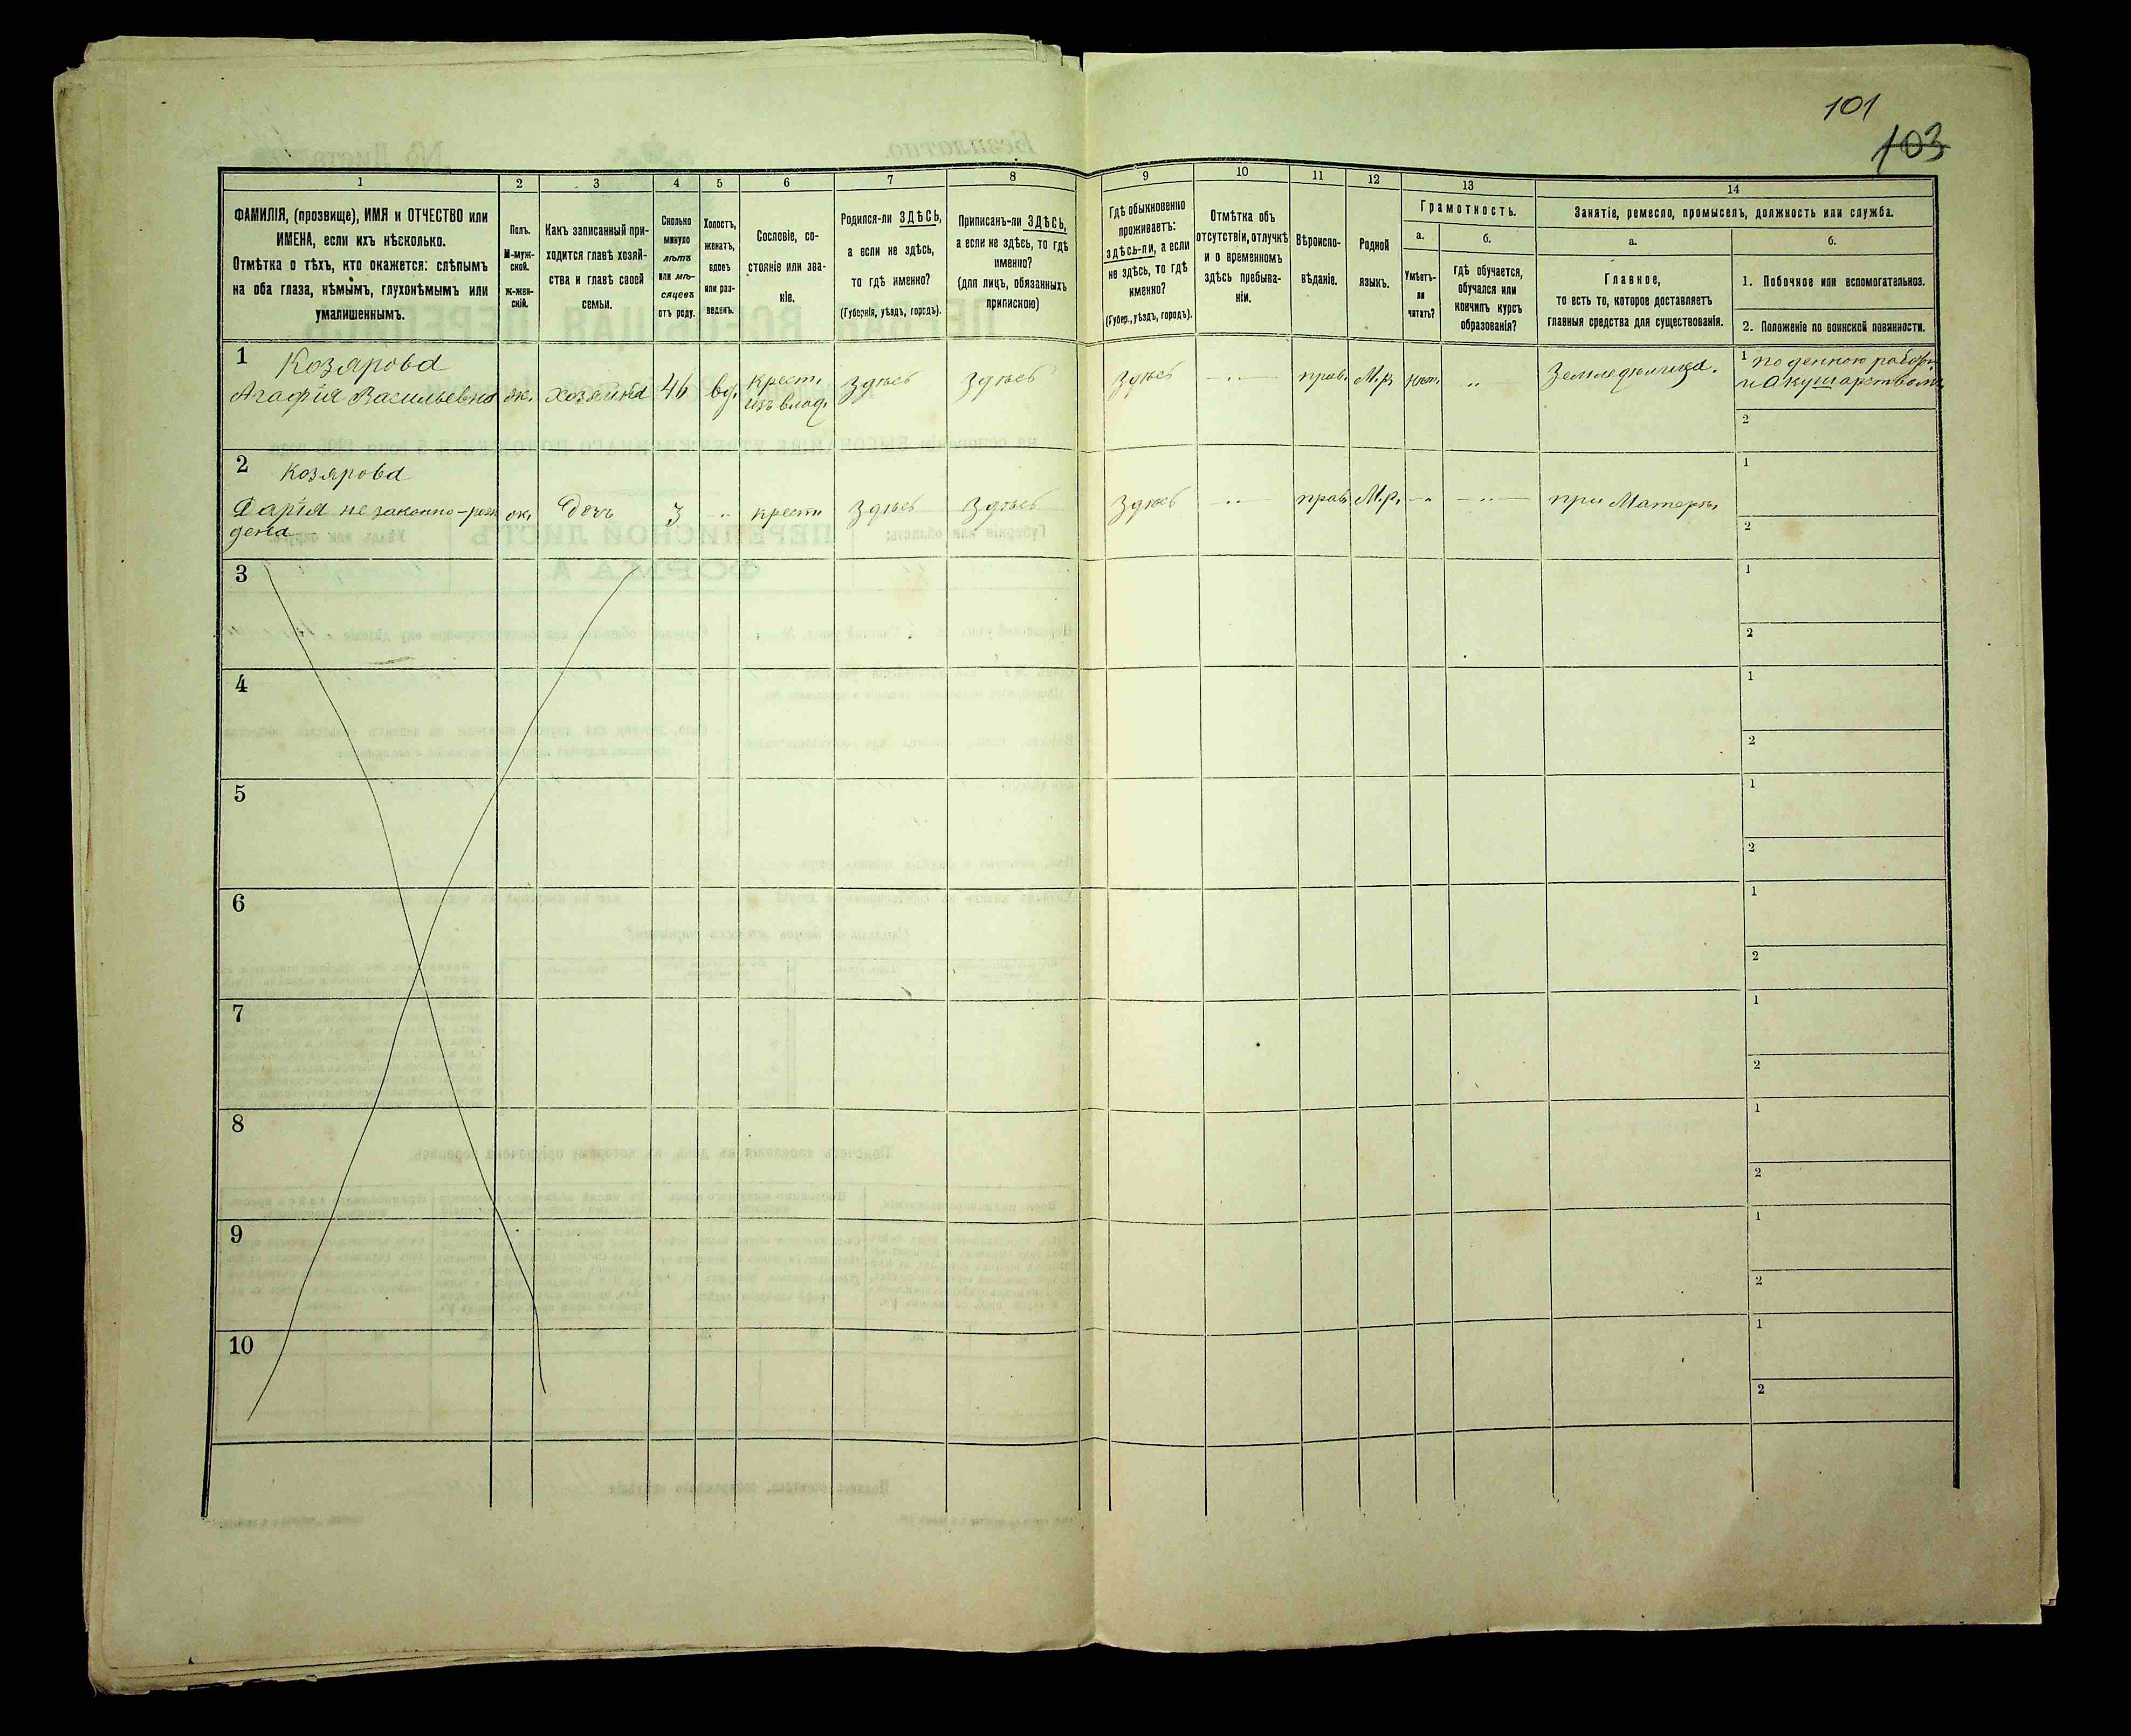 101
103
1
2
3
4
5
6
7
8
9
10
11
12
13
14
ФАМИЛІЯ, (прозвище), ИМЯ и ОТЧЕСТВО или
ИМЕНА, если ихъ нѣсколько.
Отмѣтка о тѣхъ, кто окажется: слѣпымъ
на оба глаза, нѣмымъ, глухонѣмымъ или
умалишеннымъ.
Полъ.
М-муж-
ской.
Ж-жен-
скій.
Какъ записанный при-
ходится главѣ хозяй-
ства и главѣ своей
семьи.
Сколько
минуло
лѣтъ
или мѣ-
сяцевъ
отъ роду.
Холостъ,
женатъ,
вдовъ
или раз-
веденъ.
Сословіе, со-
стояніе или зва-
ніе.
Родился-ли ЗДѢСЬ,
а если не здѣсь,
то гдѣ именно?
(Губернія, уѣздъ, городъ).
Приписанъ-ли ЗДѢСЬ,
а если не здѣсь, то гдѣ
именно?
(для лицъ, обязанныхъ
припискою)
Гдѣ обыкновенно
проживаетъ:
здѣсь-ли, а если
не здѣсь, то гдѣ
именно?
(Губер., уѣздъ, городъ).
Отмѣтка объ
отсутствіи, отлучкѣ
и о временномъ
здѣсь пребыва-
ніи.
Вѣроиспо-
вѣданіе.
Родной
языкъ.
Грамотность.
а.
Умѣетъ-
ли
читать?
б.
гдѣ обучается,
обучался или
кончилъ курсъ
образованія?
Занятіе, ремесло, промыселъ, должность или служба.
а.
Главное,
то есть то, которое доставляетъ
главныя средства для существованія.
б.
1. Побочное или вспомогательное.
2. Положеніе по воинской повинности.
1
Козярова
Агафія Васильевна
ж.
хозяйка
46
вд.
крест.
изъ влад.
здѣсь
здѣсь
здѣсь
— „ —
прав.
М.р.
нѣт.
„
Земледѣлица.
1 поденною работ.
и акушарствомъ
2
2
Козярова
Дарія не законно-рож
дена
ж.
Дочь
3
„
крест.
здѣсь
здѣсь
здѣсь
— „ —
прав.
М.р.
— „
— „ —
при Матери,
1
2
3
1
2
4
1
2
5
1
2
6
1
2
7
1
2
8
1
2
9
1
2
10
1
2